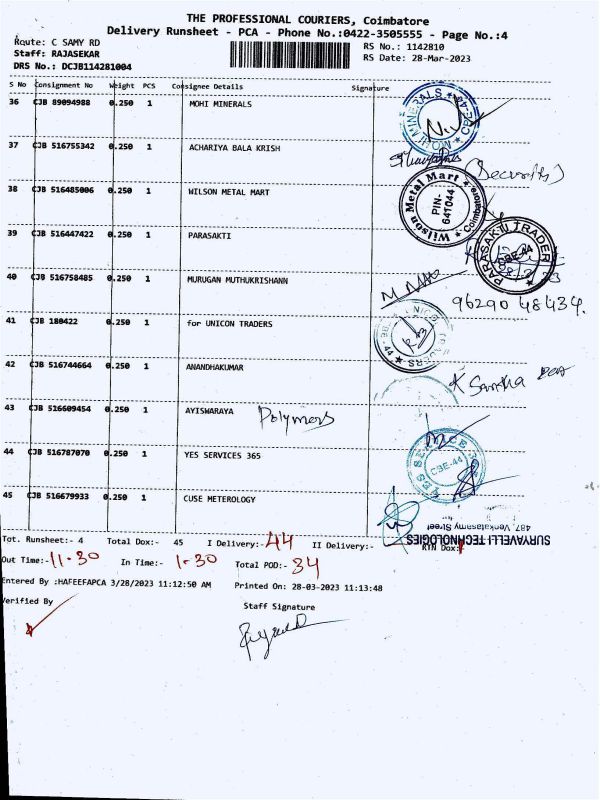 THE PROFESSIONAL COURIERS, Coimbatore
Delivery Runsheet - PCA - Phone No.:0422-3505555 - Page No.:4
Route: C SAMY RD
RS No.: 1142810
Staff: RAJASEKAR
RS Date: 28-Mar-2023
DRS No.: DCJB114281004
S No Consignment No Weight PCS Consignee Details Signature
36 CJB 89094988 0.250 1 MOHI MINERALS
MOHI MINERALS CBE-44
37 CJB 516755342 0.250 1 ACHARIYA BALA KRISH
(Security)
38 CJB 516485006 0.250 1 WILSON METAL MART
Wilson Metal Mart Coimbatore PIN-641044
39 CJB 516447422 0.250 1 PARASAKTI
PARASAKTI TRADER CBE-44
40 CJB 516758485 0.250 1 MURUGAN MUTHUKRISHANN
96290 48434.
41 CJB 180422 0.250 1 for UNICON TRADERS
42 CJB 516744664 0.250 1 ANANDHAKUMAR
43 CJB 516609454 0.250 1 AYISWARAYA Polymers
44 CJB 516787070 0.250 1 YES SERVICES 365
CBE-44
45 CJB 516679933 0.250 1 CUSE METEROLOGY
487, Venkatasamy Street
SURYAVELLI TECHNOLOGIES
Tot. Runsheet:- 4 Total Dox:- 45 I Delivery:-44 II Delivery:- RTN Dox:
Out Time:-11-30 In Time:- 1-30 Total POD:- 34
Entered By :HAFEEFAPCA 3/28/2023 11:12:50 AM Printed On: 28-03-2023 11:13:48
Verified By
Staff Signature